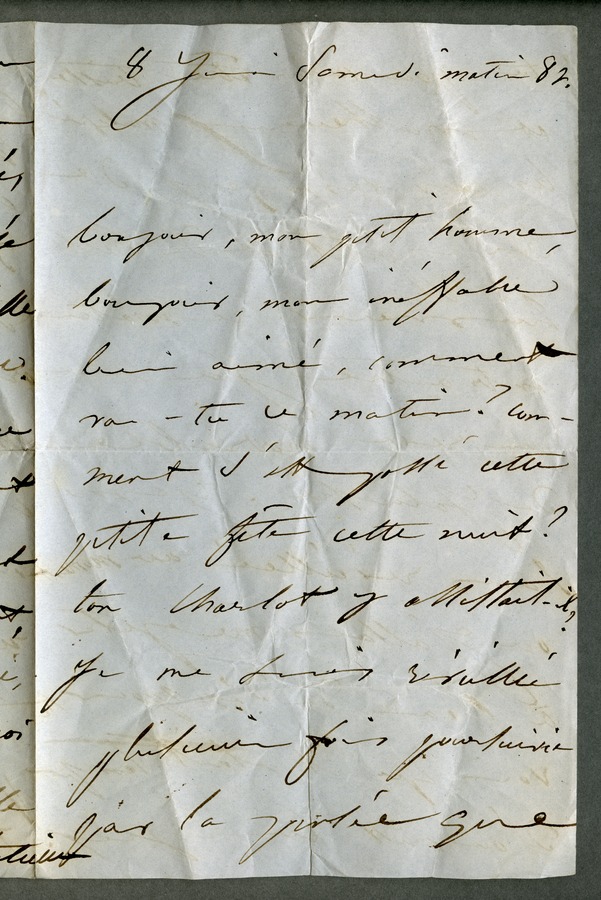 8 Juin Samedi matin 82.
bonjour, mon ptit homme,
bonjour, mon inéffable
bien aimé, comment
vas-tu ce matin? com-
ment s'est passé cette
ptite fête cette nuit?
ton Charlot y assistait-il?
Je me suis réveillé
plusieurs fois poursuivie
par la pensée que